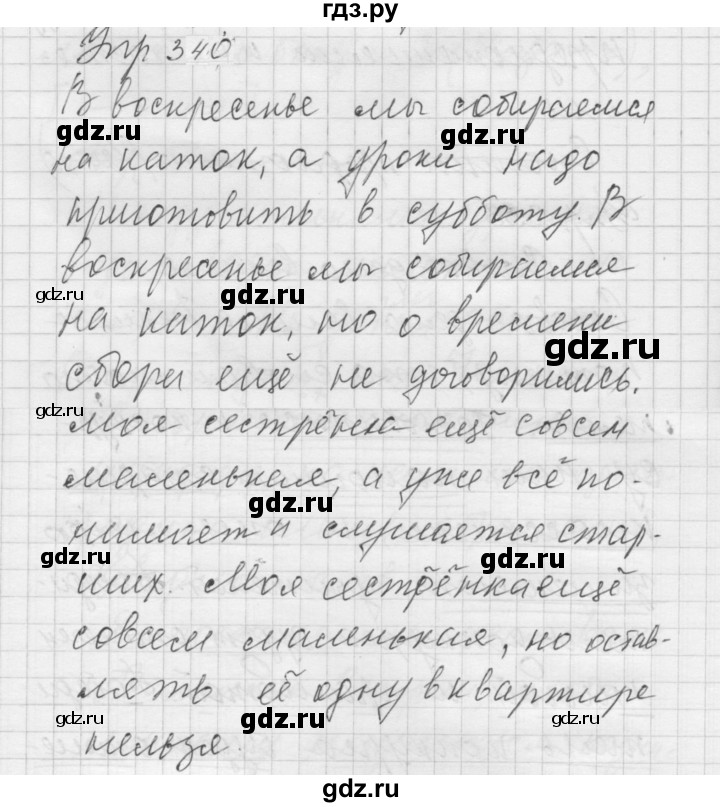 гдз.ру
Упр 340
В воскресенье мы собираемся
gdz.ru gdz.ru
на каток, а уроки надо
приготовить в субботу. В
воскресенье мы собираемся
gdz.ru gdz.ru
на каток, но о времени
gdz.ru
сборы ещё не договорились.
gdz.ru
Моя сестрёнка ещё совсем
маленькая, а уже всё по-
gdz.ru
нимает и слушается стар-
gdz.ru gdz.ru
ших. Моя сестрёнка ещё
совсем маленькая, но остав-
лять её одну в квартире
gdz.ru gdz.ru gdz.ru
нельзя.
gdz.ru